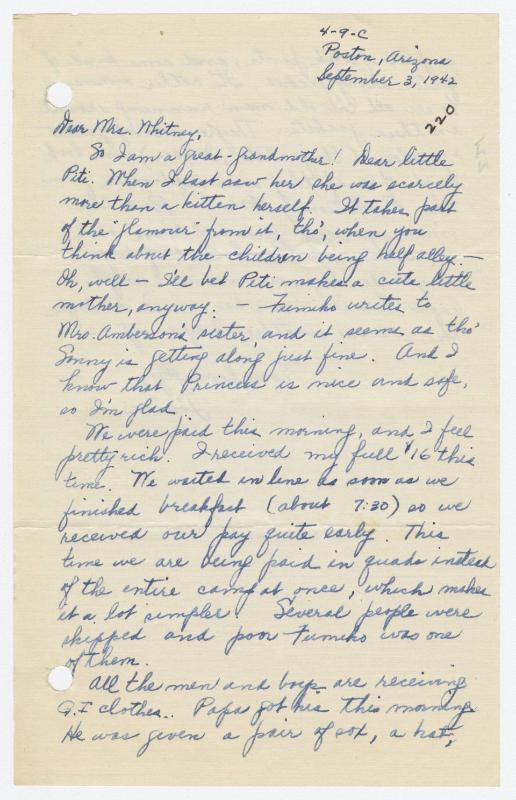 4-9-C
Poston, Arizona
September 3, 1942
220
Dear Mrs. Whitney,
So I am a great-grandmother! Dear little
Piti. When I last saw her she was scarcely
more than a kitten herself. It takes part
of the "glamour" from it, tho', when you
think about the children being half alley. —
Oh, well — I'll bet Piti makes a cute little
mother, anyway. — Fumiko writes to
Mrs. Amberson's sister, and it seems as tho'
Sonny is getting along just fine. And I
know that Princess is nice and safe,
so I'm glad.
We were paid this morning, and I feel
pretty rich. I received my full $16 this
time. We waited in line as soon as we
finished breakfast (about 7:30) so we
received our pay quite early. This
time we are being paid in quads instead
of the entire camp at once, which makes
it a lot simpler. Several people were
skipped and poor Fumiko was one
of them.
All the men and boys are receiving
G.I clothes.. Papa got his this morning.
He was given a pair of sox, a hat,